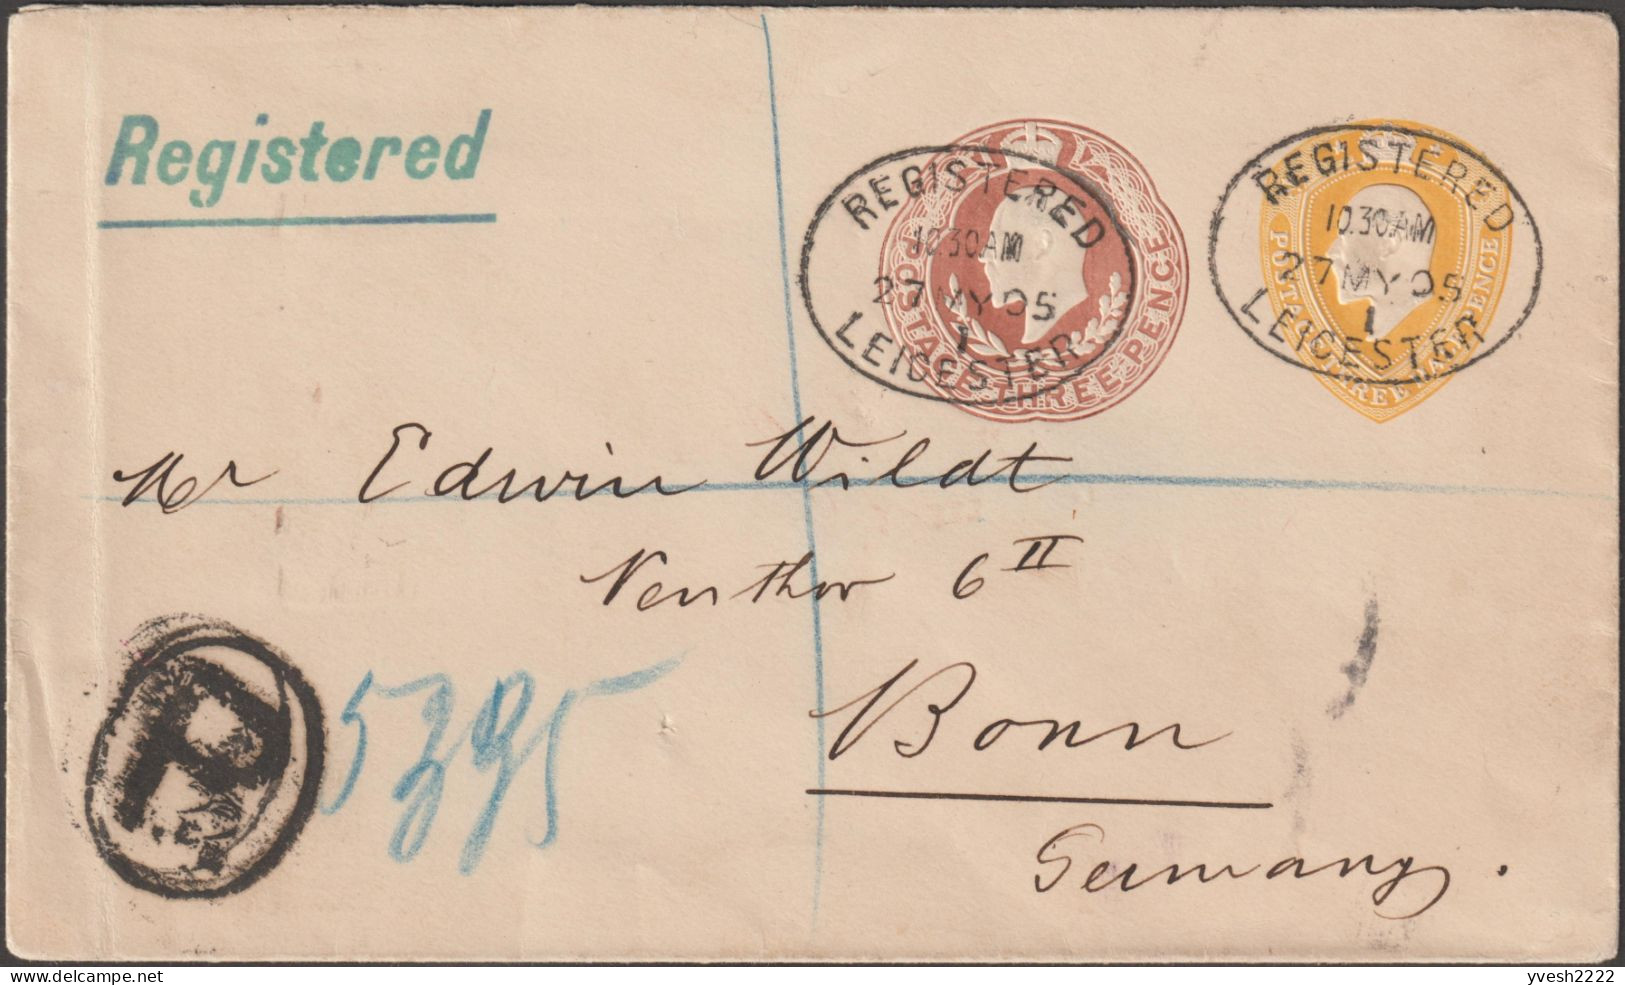 Registered
REGISTERED
10.30AM
27 MY 05
1
LEICESTER
POSTAGE THREE PENCE
REGISTERED
10.30AM
27 MY 05
1
LEICESTER
POSTAGE THREE HALF PENCE
Mr Edwin Wildt
6 II
Bonn
Germany.
R
5395
yvesh2222